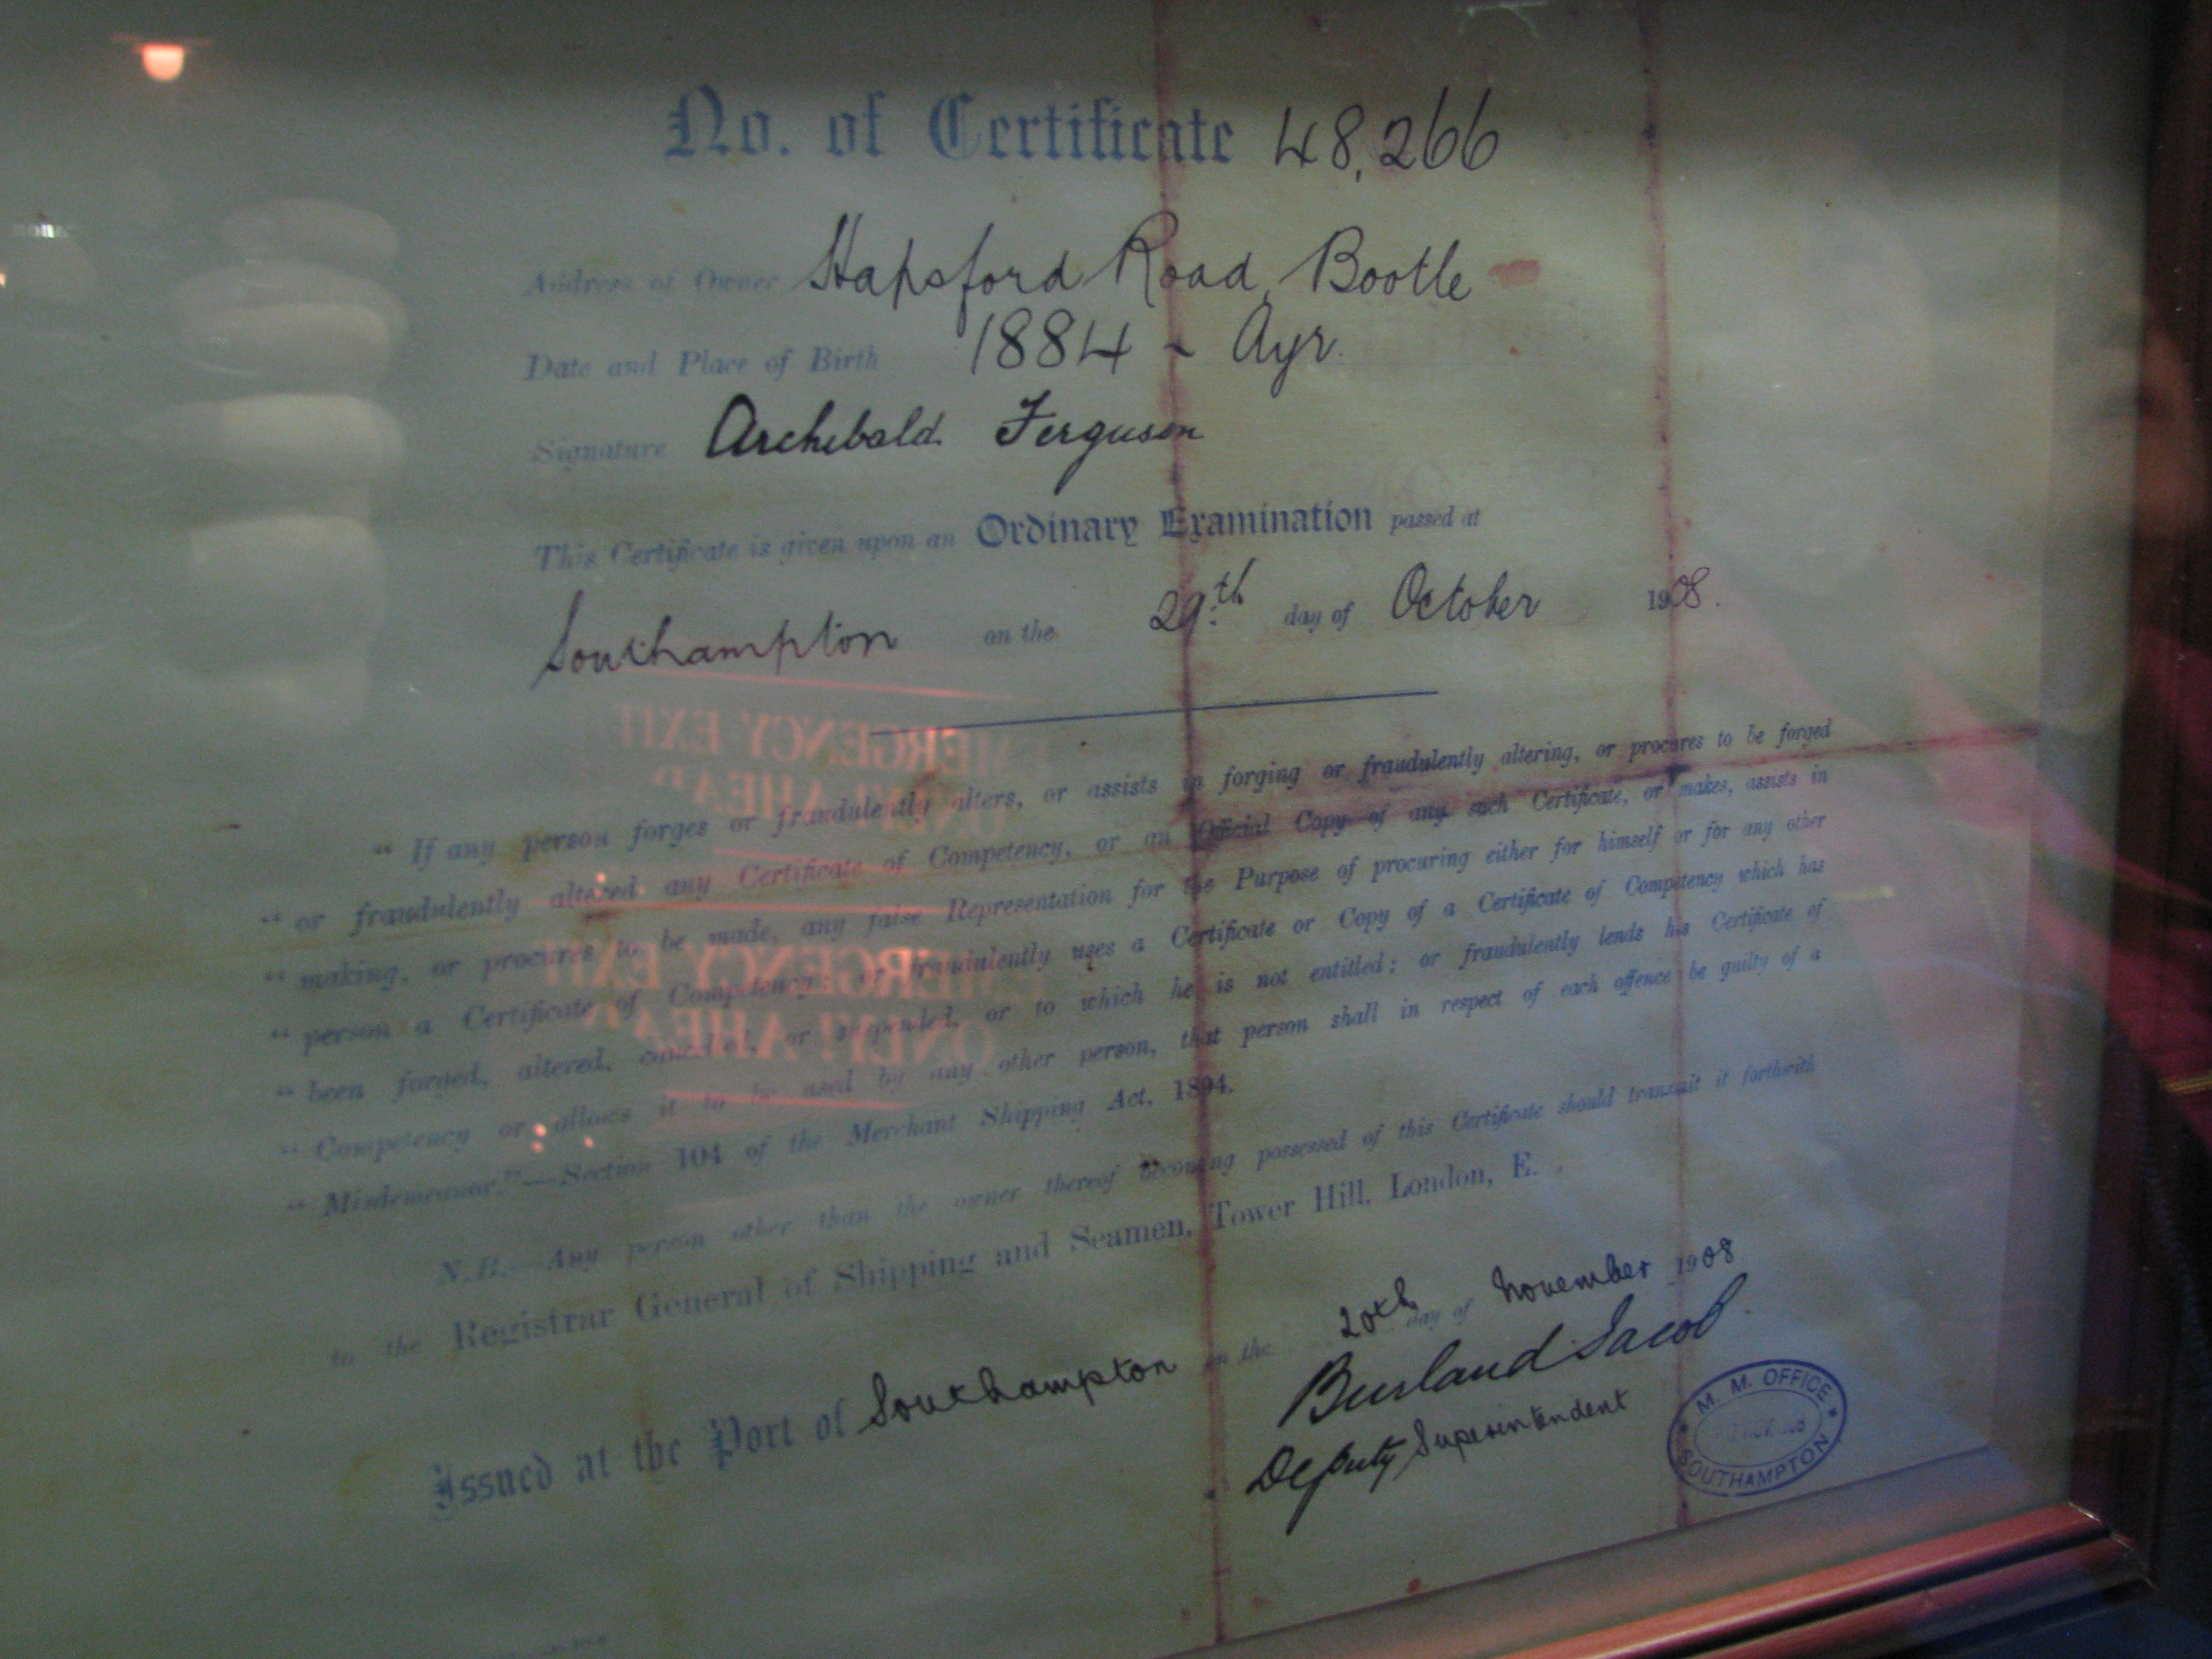 No. of Certificate 48,266
Address of Owner Hapsford Road, Bootle
Date and Place of Birth 1884 - Ayr.
Signature Archibald Ferguson
This Certificate is given upon an Ordinary Examination passed at
Southampton on the 29th day of October 1908.
EMERGENCY EXIT
ONLY! AHEAD
“ If any person forges or fraudulently alters, or assists in forging or fraudulently altering, or procures to be forged
“ or fraudulently altered any Certificate of Competency, or an Official Copy of any such Certificate, or makes, assists in
“ making, or procures to be made, any false Representation for the Purpose of procuring either for himself or for any other
“ person a Certificate of Competency; or fraudulently uses a Certificate or Copy of a Certificate of Competency which has
“ been forged, altered, cancelled, or suspended, or to which he is not entitled; or fraudulently lends his Certificate of
“ Competency or allows it to be used by any other person, that person shall in respect of each offence be guilty of a
“ Misdemeanor.”—Section 104 of the Merchant Shipping Act, 1894.
EMERGENCY EXIT
ONLY! AHEAD
N.B.—Any person other than the owner thereof becoming possessed of this Certificate should transmit it forthwith
to the Registrar General of Shipping and Seamen, Tower Hill, London, E.
Issued at the Port of Southampton on the 20th day of November 1908
Burland Jacob
Deputy Superintendent
M. M. OFFICE
SOUTHAMPTON